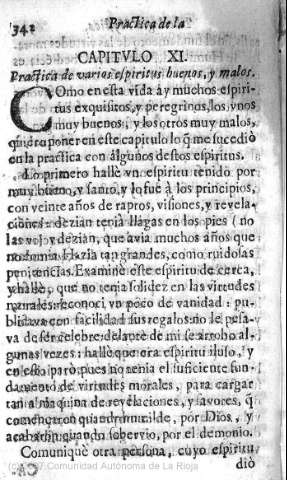 342 Practica de la
CAPITVLO XI.
Practica de varios espiritus buenos, y malos.
COmo en esta vida ay muchos espiri-
tus exquisitos, y peregrinos, los vnos
muy buenos, y los otros muy malos,
quiero poner en este capitulo lo q̃ me sucediò
en la practica con algunos destos espiritus.
Lo primero hallè vn espiritu tenido por
muy bueno, y santo, y lo fuè à los principios,
con veinte años de raptos, visiones, y revela-
ciones: dezian tenia llagas en los pies (no
las vi) y dezian, que avia muchos años que
no comia. Hazia tan grandes, como ruidosas
penitencias. Examinè este espiritu de cerca,
y hallè, que no tenia solidez en las virtudes
morales: reconoci vn poco de vanidad: pu-
blicava con facilidad sus regalos: no le pesa-
va de ser celebre: delante de mi se arrobo al-
gunas vezes: hallè que era espiritu iluso, y
en esto parò pues no tenia el suficiente fun-
damento de virtudes morales, para cargar
tanta maquina de revelaciones, y favores, q̃
començaron quando humilde, por Dios, y
acabaron quando sobervio, por el demonio.
Comuniquè otra persona, cuyo espiritu
diò
Comunidad Autónoma de La Rioja